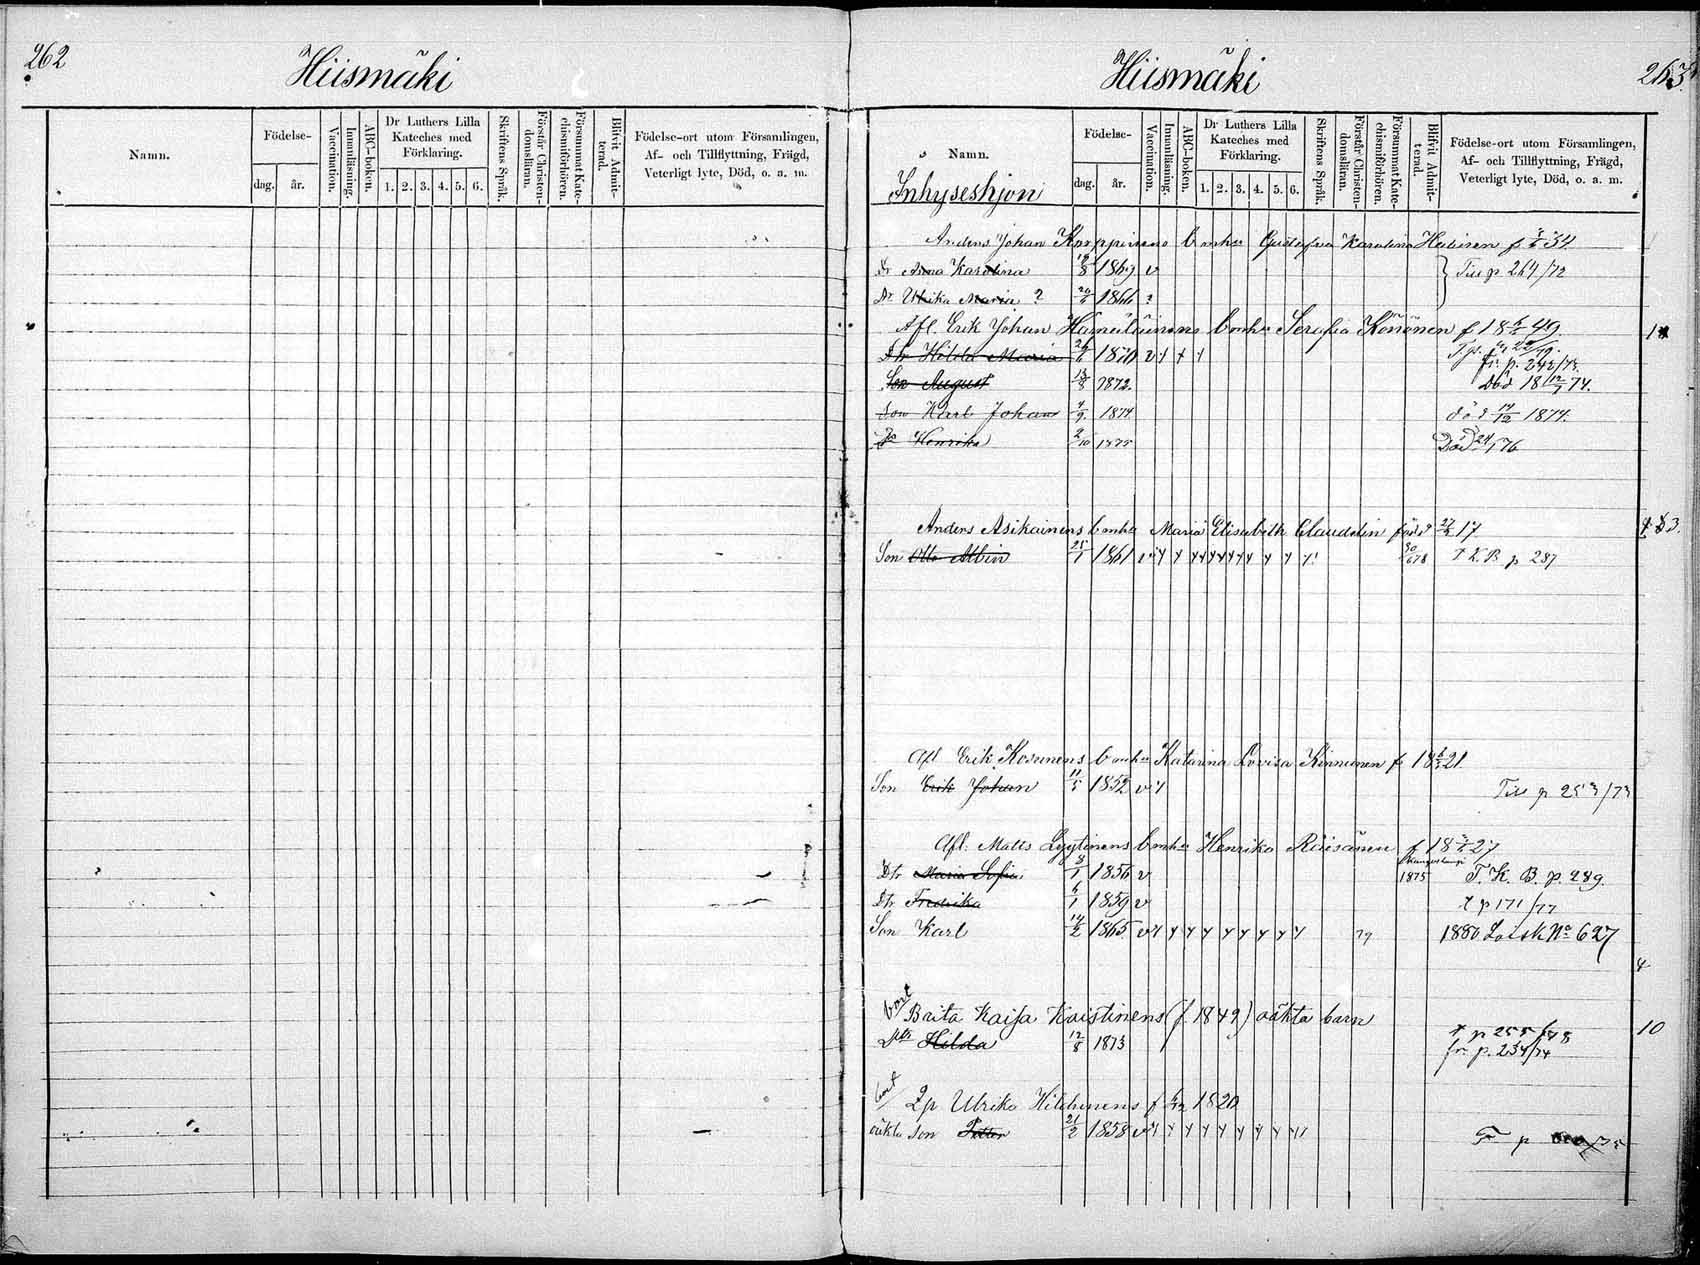 262
Hiismäki
Namn.
Födelse-
dag. år.
Vaccination.
Innanläsning.
ABC-boken.
Dr Luthers Lilla
Kateches med
Förklaring.
1. 2. 3. 4. 5. 6.
Skriftens Språk.
Förstår Christen-
domsläran.
Försummat Kate-
chismiförhören.
Blifvit Admit-
terad.
Födelse-ort utom Församlingen,
Af- och Tillflyttning, Frägd,
Veterligt lyte, Död, o. a. m.
Hiismäki
263.
Namn.
Födelse-
dag. år.
Vaccination.
Innanläsning.
ABC-boken.
Dr Luthers Lilla
Kateches med
Förklaring.
1. 2. 3. 4. 5. 6.
Skriftens Språk.
Förstår Christen-
domsläran.
Försummat Kate-
chismiförhören.
Blifvit Admit-
terad.
Födelse-ort utom Församlingen,
Af- och Tillflyttning, Frägd,
Veterligt lyte, Död, o. a. m.
Inhyseshjon
Anders Johan Karppinens enka Gustafva Karolina f 34
Dr Anna Karolina 1869 v Till p 264/72
Dr Ulrika Maria ? 1866 ?
Afl. Erik Johan Hämäläinens enka Serafia Könönen f 18 49
Dtr Hilda Maria 26/6 1870 v fr. p. 242/73.
Son August 13/8 1872. Död 18 74.
Son Karl Johan 4/9 1874 död 14/12 1874.
Dr Henrika 2/10 1875 Död 76
Anders Asikainens enka Maria Elisabeth Claudelin född 17
Son Otto Albin 25/1 1861 30/6 78 T K. B p 287
Afl Erik Kosunens enka Katarina Lovisa Kinnunen f 18 21
Son Erik Johan 11/5 1852 v Till p 253/73
Afl. Matts Lyytinens enka Henrika Räisänen f 18 27
Dtr Maria Sofia 8/1 1856 v 1875 T. K. B. p. 289.
Dtr Fredrika 6/1 1859 v t p 171/77
Son Karl 14/2 1865 v 1880 No 627
4
bort Brita Kaisa Koistinens (f. 1849) oäkta barn
Dtr Hilda 12/8 1873 t p 255/78 10
fr p. 234/74
bort Qp Ulrika f 1820
oäkta son Petter 21/2 1858 v T p